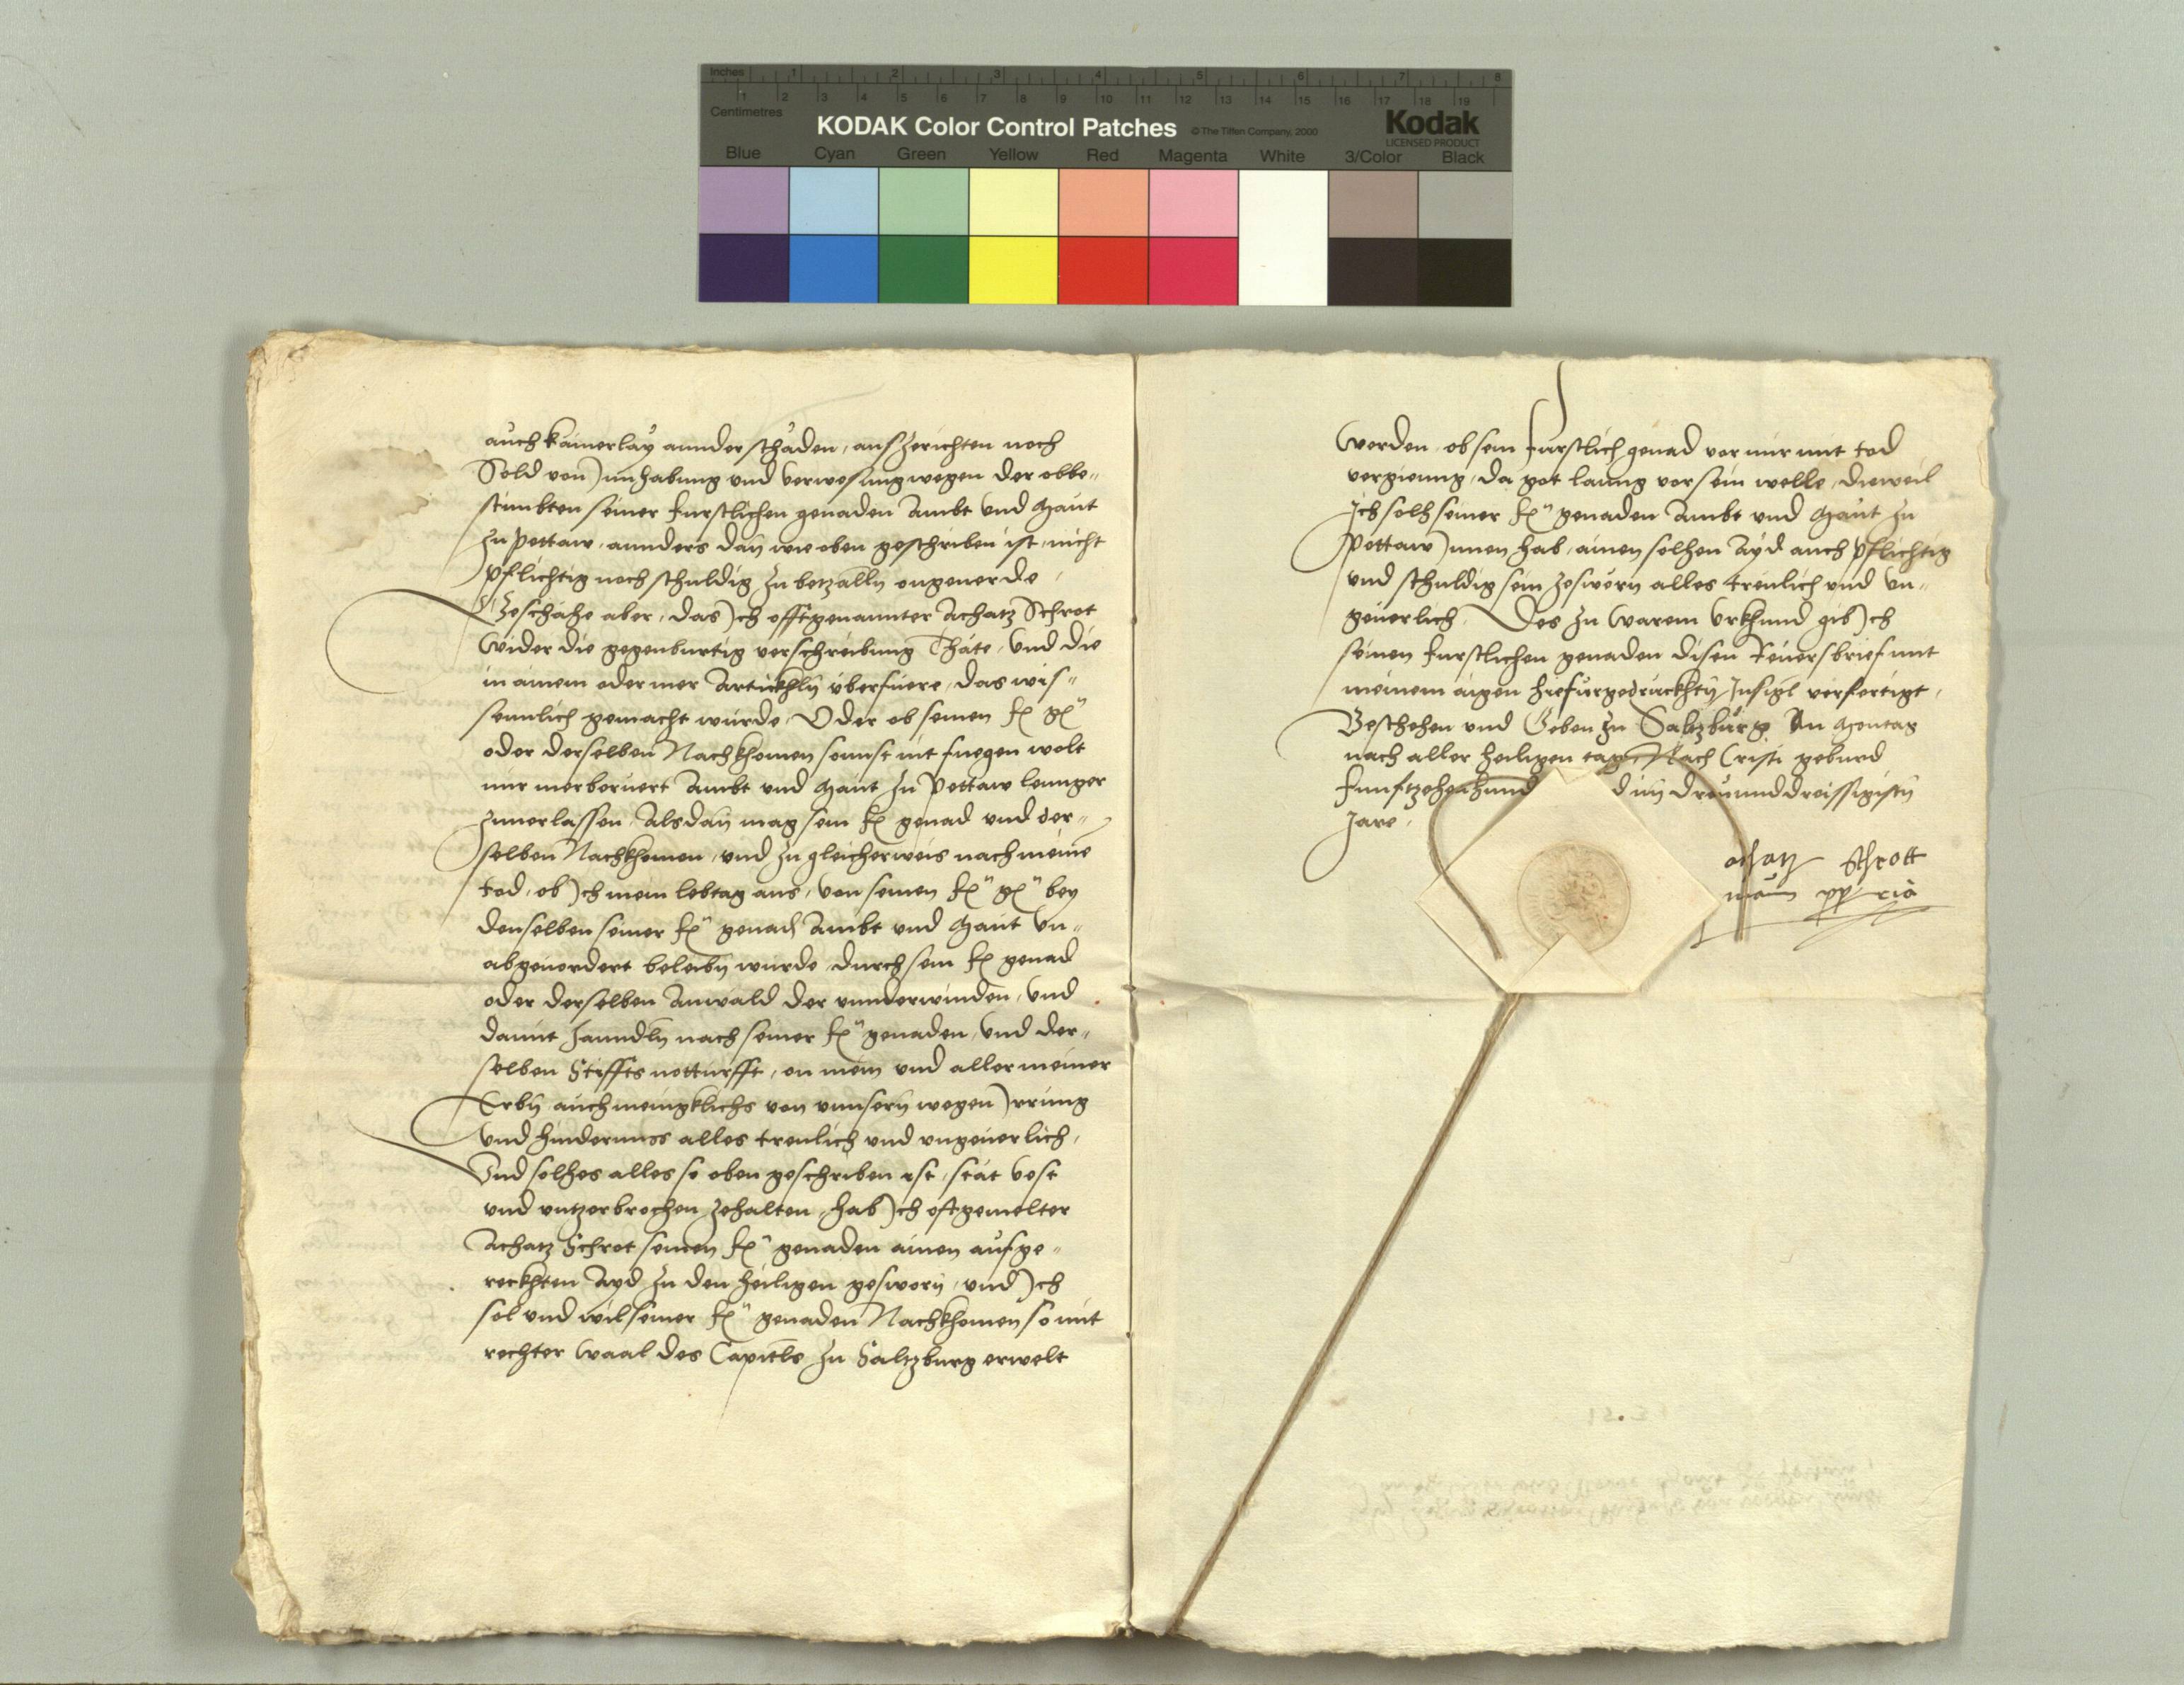 Inches 1 2 3 4 5 6 7 8
1 2 3 4 5 6 7 8 9 10 11 12 13 14 15 16 17 18 19
Centimetres
KODAK Color Control Patches © The Tiffen Company, 2000 Kodak
LICENSED PRODUCT
Blue Cyan Green Yellow Red Magenta White 3/Color Black
auch kainerlay annder schäden, ausszerichten noch
Sold von Innhabung vnd verwesung wegen der obbe-
stimbten seiner Furstlichen genaden Ambt vnd Haut
zu Pettaw, annders dan wie oben geschriben ist, nicht
pflichtig noch schuldig zu betzalln ongeuerde,
Geschähe aber, das Ich offtgenannter Achatz Schrot
wider die gegenburtig verschreibung Thäte, vnd die
in ainem oder mer Artickhln überfuere, das wis-
senntlich gemacht wurde, Oder ob seinen f g
oder derselben Nachkhomen sonnst nit fuegen wolt
mir merberuert Ambt vnd Haut zu Pettaw lennger
zuuerlassen, Alsdan mag sein f genad vnd der-
selben Nachkhomen, vnd zu gleicherweis nach meinē
tod, ob Ich mein lebtag aus, von seinen f g bey
denselben seiner f genad Ambt vnd Haut vn-
abgeuordert beleibn wurde, durch sein f genad
oder derselben Anwald der vnnderwinden, vnd
damit hanndln nach seiner f genaden, vnd der-
selben Stiffts notturfft, on mein vnd aller meiner
Erbn auch meingklichs von vnnsern wegen Irrung
vnd hindernuss alles treulich vnd vngeuerlich,
Vnd solhes alles so oben geschriben ist, stät vest
vnd vntzerbrochen zehalten, hab Ich oftgemelter
Achatz Schrot seinen f genaden ainen aufge-
reckhten Ayd zu den heiligen gesworn, vnd Ich
sol vnd wil seiner f genaden Nachkhomen so mit
rechter waal des Capitls zu Saltzburg erwelt
werden, ob sein Furstlich genad vor mir mit tod
vergienng, da got lanng vor sein welle, dieweil
Ich solh seiner f genaden Ambt vnd Haut zu
Pettaw Innen hab, ainen solhen Ayd auch pflichtig
vnd schuldig sein zesworn alles treulich vnd vn-
geuerlich. Des zu warem Vrkhund gib Ich
seinen Furstlichen genaden disen Reuersbrief mit
meinem aigen hiefürgedruckhtn Insigl verfertigt,
Beschehen vnd Geben zu Saltzburg An Montag
nach aller heiligen tag, Nach Cristi geburd
Funftzehenhund dim dreuunddreissigistn
Jare.
achatz schrott
main ppria